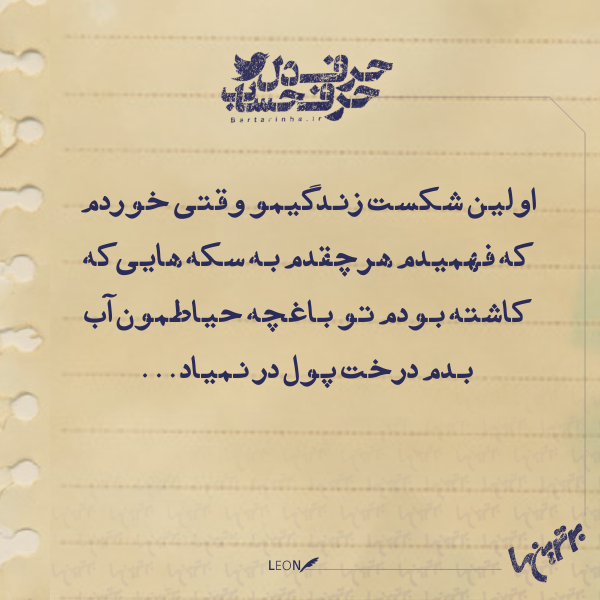 حرف دل
حرف حساب
Bartarinha.ir
اولین شکست زندگیمو وقتی خوردم
که فهمیدم هرچقدم به سکه هایی که
کاشته بودم تو باغچه حیاطمون آب
بدم درخت پول در نمیاد...
برترین ها
LEON